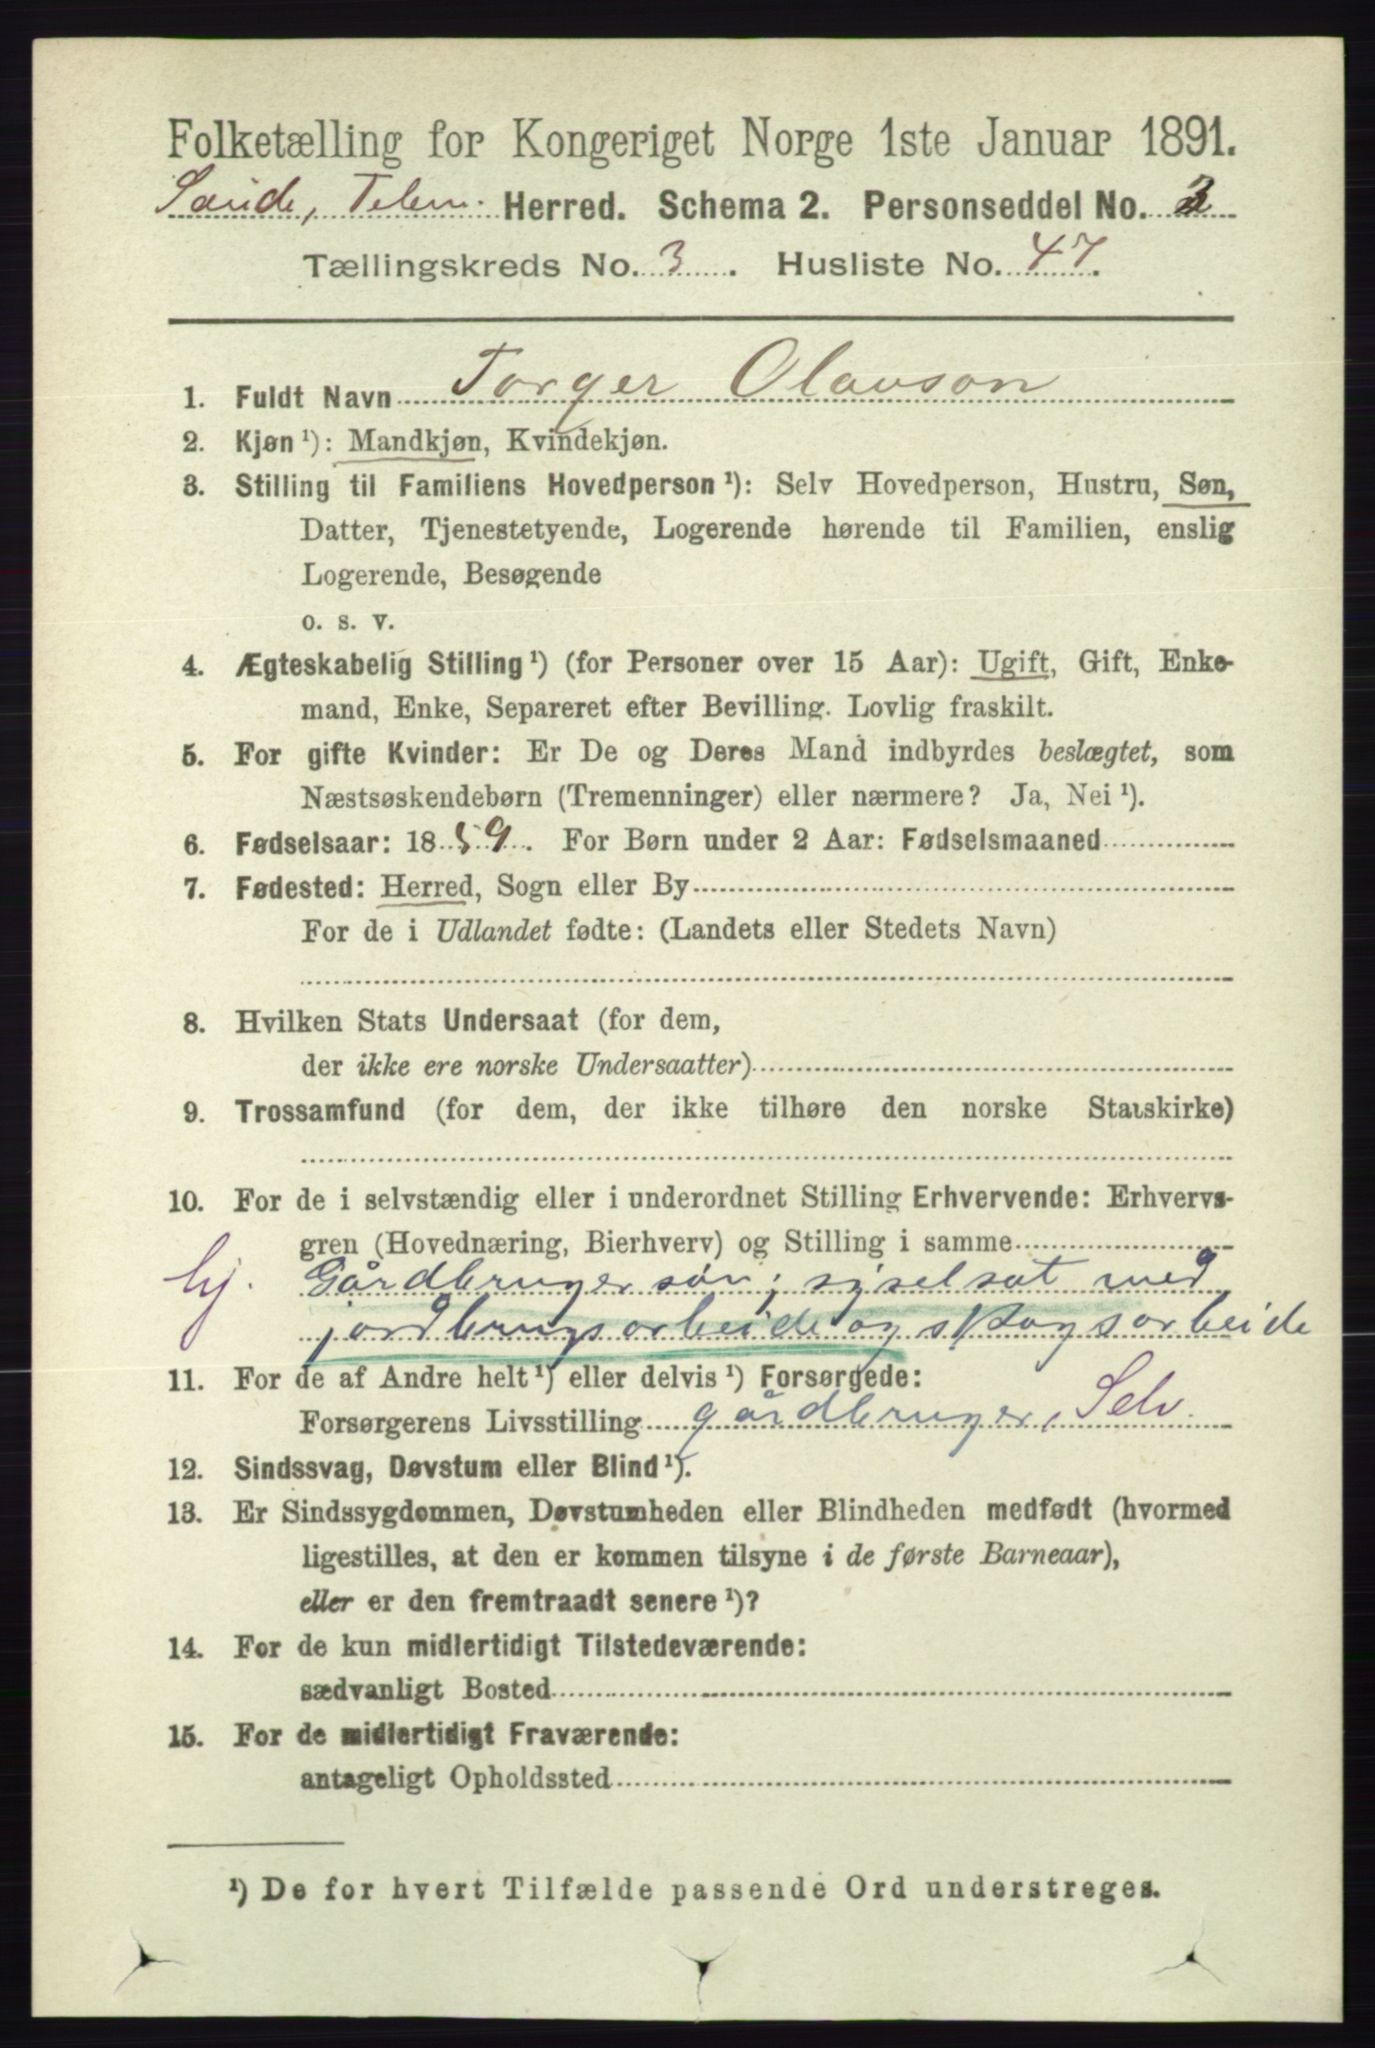 Folketælling for Kongeriget Norge 1ste Januar 1891.
Saude, Telem. Herred. Schema 2. Personseddel No. 2
Tællingskreds No. 3. Husliste No. 47.
1. Fuldt Navn Torger Olauson
2. Kjøn ¹): Mandkjøn, Kvindekjøn.
3. Stilling til Familiens Hovedperson ¹): Selv Hovedperson, Hustru, Søn,
Datter, Tjenestetyende, Logerende hørende til Familien, enslig
Logerende, Besøgende
o. s. v.
4. Ægteskabelig Stilling ¹) (for Personer over 15 Aar): Ugift, Gift, Enke-
mand, Enke, Separeret efter Bevilling. Lovlig fraskilt.
5. For gifte Kvinder: Er De og Deres Mand indbyrdes beslægtet, som
Næstsøskendebørn (Tremenninger) eller nærmere? Ja, Nei ¹).
6. Fødselsaar: 1859. For Børn under 2 Aar: Fødselsmaaned
7. Fødested: Herred, Sogn eller By
For de i Udlandet fødte: (Landets eller Stedets Navn)
8. Hvilken Stats Undersaat (for dem,
der ikke ere norske Undersaatter)
9. Trossamfund (for dem, der ikke tilhøre den norske Statskirke)
10. For de i selvstændig eller i underordnet Stilling Erhvervende: Erhvervs-
gren (Hovednæring, Bierhverv) og Stilling i samme
hj. Gårdbruger søn; sysselsat med
jordbrugsarbeide og skogsarbeide
11. For de af Andre helt ¹) eller delvis ¹) Forsørgede:
Forsørgerens Livsstilling gårdbruger, Selv.
12. Sindssvag, Døvstum eller Blind ¹).
13. Er Sindssygdommen, Døvstumheden eller Blindheden medfødt (hvormed
ligestilles, at den er kommen tilsyne i de første Barneaar),
eller er den fremtraadt senere ¹)?
14. For de kun midlertidigt Tilstedeværende:
sædvanligt Bosted
15. For de midlertidigt Fraværende:
antageligt Opholdssted
¹) De for hvert Tilfælde passende Ord understreges.